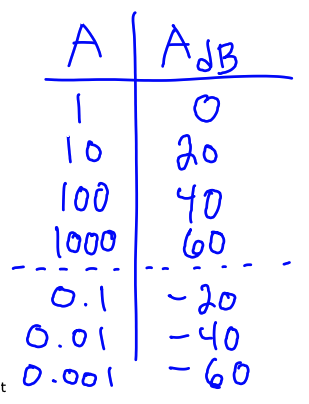 A A dB
1 0
10 20
100 40
1000 60
0.1 -20
0.01 -40
t 0.001 -60